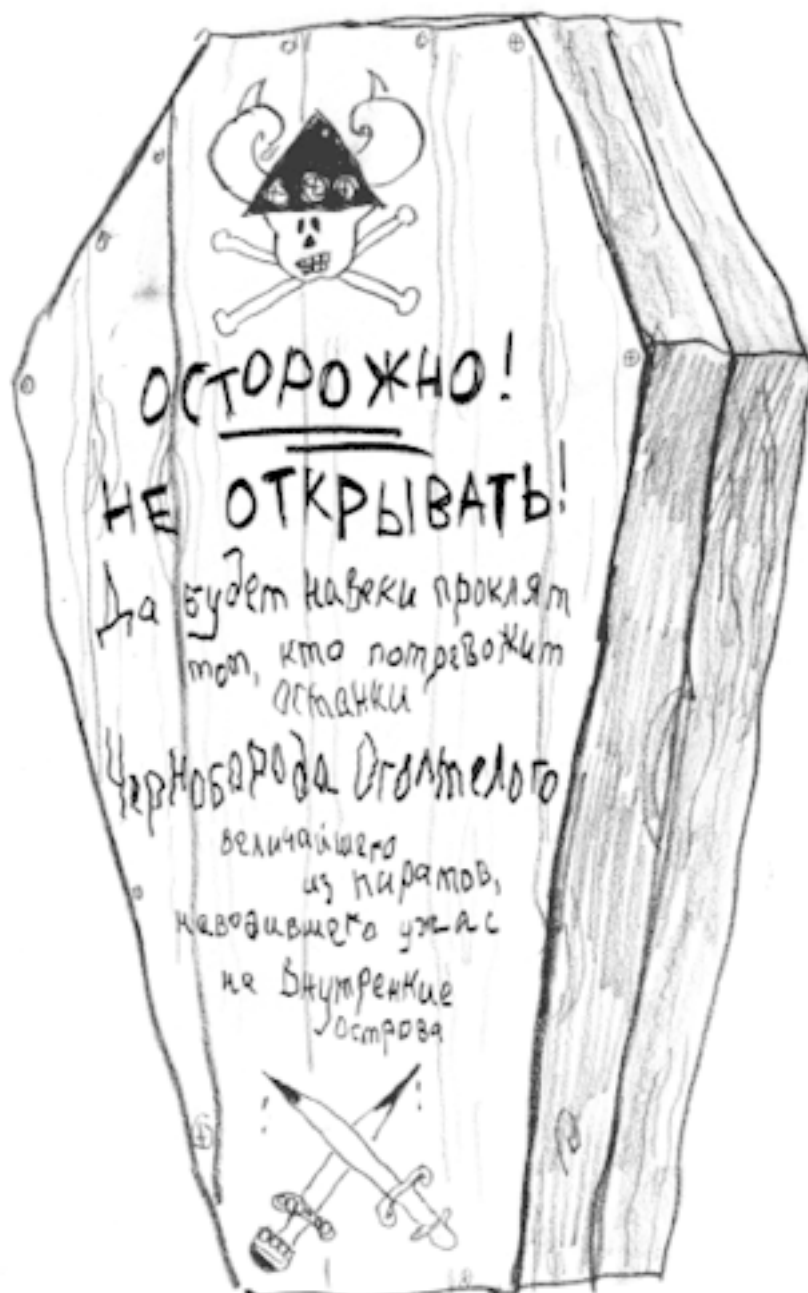 ОСТОРОЖНО!
НЕ ОТКРЫВАТЬ!
Да будет навеки проклят
тот, кто потревожит
останки
Черноборода Оголтелого
величайшего
из пиратов,
наводившего ужас
на Внутренние
острова